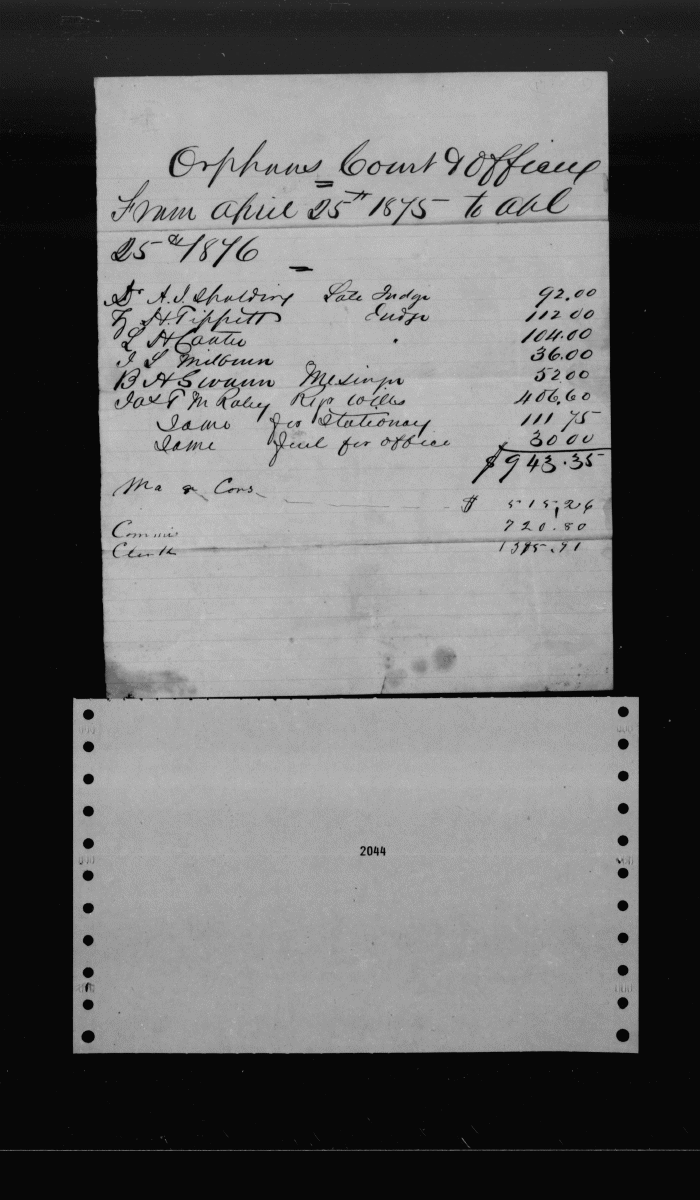 Orphans Court & Officers
From April 25th 1875 to Apl
25th 1876
Dr A. J. Spalding Late Judge 92.00
H. Tippett Judge 112 00
L H Canter " 104.00
J S Milburn 36.00
B H Swann Mesinger 52 00
Jas T M Raley Regr Wills 406.60
Same for Stationary 111 75
Same Fuel for office 30 00
$943.35
Ma & Cons $ 515,26
Commis 720.80
Clerk
2044